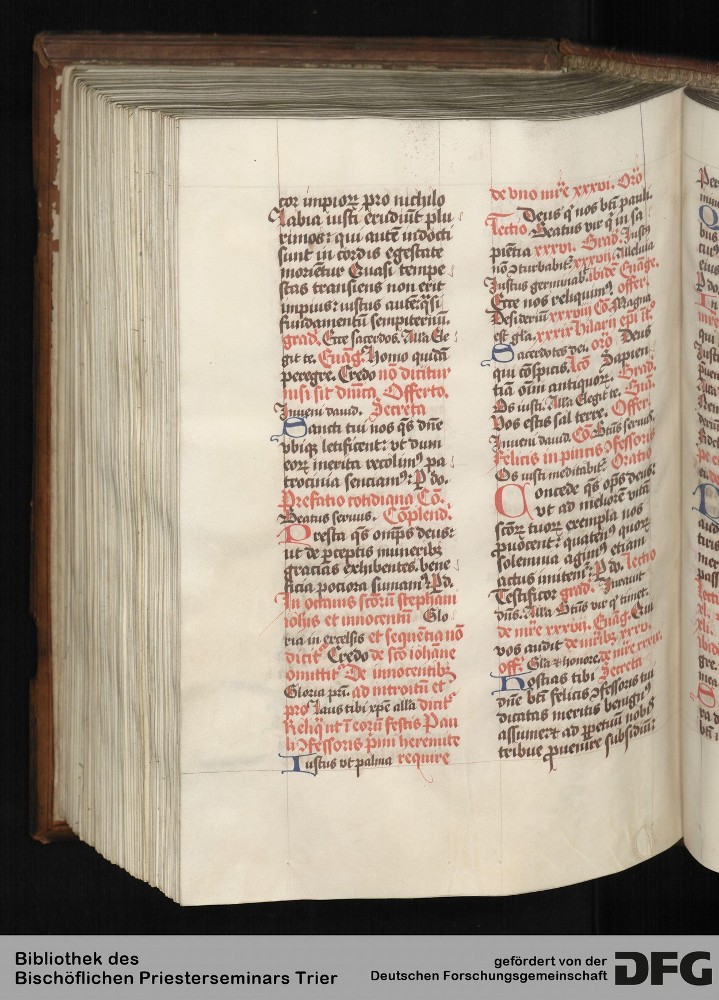 cor impiorꝝ pro nichilo
Labia iusti erudiūt plu
rimos: qui autē indocti
sunt in cordis egestate
moriētur Quasi tempe
stas transiens non erit
impius: iustus autē q̄si
fundamentū sempiternū.
grad. Ecce sacerdos. Alla Ele
git te. Euāg. Homo quidā
peregre. Credo nō dicitur
nisi sit dn̄ica. Offerto.
Inueni dauid. Secreta
Sancti tui nos q̄s dn̄e
vbiqꝫ letificent: vt dum
eoꝝ merita recolimꝰ pa
trocinia senciamꝰ: P do.
Prefatio cotidiana Cō.
Beatus seruus. Cōplend.
Presta q̄s om̄ps deus:
ut de perceptis muneribꝫ
gracias exhibentes. bene
ficia pociora sumamꝰ: P d.
In octauis sctōꝝ stephani
iohīs et innocentū Glo
ria in excelsis et sequētia nō
dicitʳ Credo de scō iohāne
omittitʳ De innocentibꝫ
Gloria pr̄i. ad introitū et
pro Laus tibi xp̄e alla dicitʳ
Reliq̄ ut ī eorū festis Pau
li ꝯfessoris primi heremite
Iustus vt palma require
de vno mr̄e xxxvi. Orō
Deus q̄ nos bt̄i pauli.
Lectio. Beatus vir q̄ in sa
piētia xxxvi. Grad. Iustꝰ
nō ꝯturbabitʳ xxxvii. Alleluia
Iustus germinabit ibidē Euāge.
Ecce nos reliquimꝰ offer.
Desideriū xxxviii Cō. Magna
est gla. xxxix Hilarii epi ꝛ ꝯf.
Sacerdotes dei. orō Deus
qui cōspicis. Lcō Sapien
tiā oīm antiquoꝝ. Grad.
Os iusti. Alla Elegit te. Euā.
Vos estis sal terre. Offer.
Inueni dauid. Cō. Btūs seruus.
Felicis in pincis ꝯfessoris
Os iusti meditabitʳ Oratio
Concede q̄s om̄ps deus:
vt ad meliorē vitā
sctōꝝ tuoꝝ exempla nos
ꝓuocent: quatenꝰ quoꝝ
solemnia agimꝰ etiam
actus imitemʳ: P do. Lectio
Testificor grad. Iurauit
dn̄s. Alla Btūs vir q̄ timet.
de mr̄e xxxvii. Euāg. Qui
vos audit de mr̄ibꝫ xxxv.
off. Gla et honore. de mr̄e xxxix.
Hostias tibi Secreta
dn̄e bt̄i felicis ꝯfessoris tui
dicatas meritis benignꝰ
assume: et ad ꝑpetuū nobis
tribue ꝓuenire subsidiū:
Bibliothek des
Bischöflichen Priesterseminars Trier
gefördert von der
Deutschen Forschungsgemeinschaft
DFG